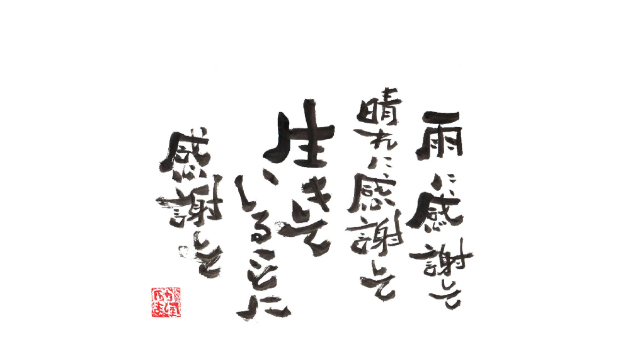 雨に感謝して
晴れに感謝して
生きて
いることに
感謝して